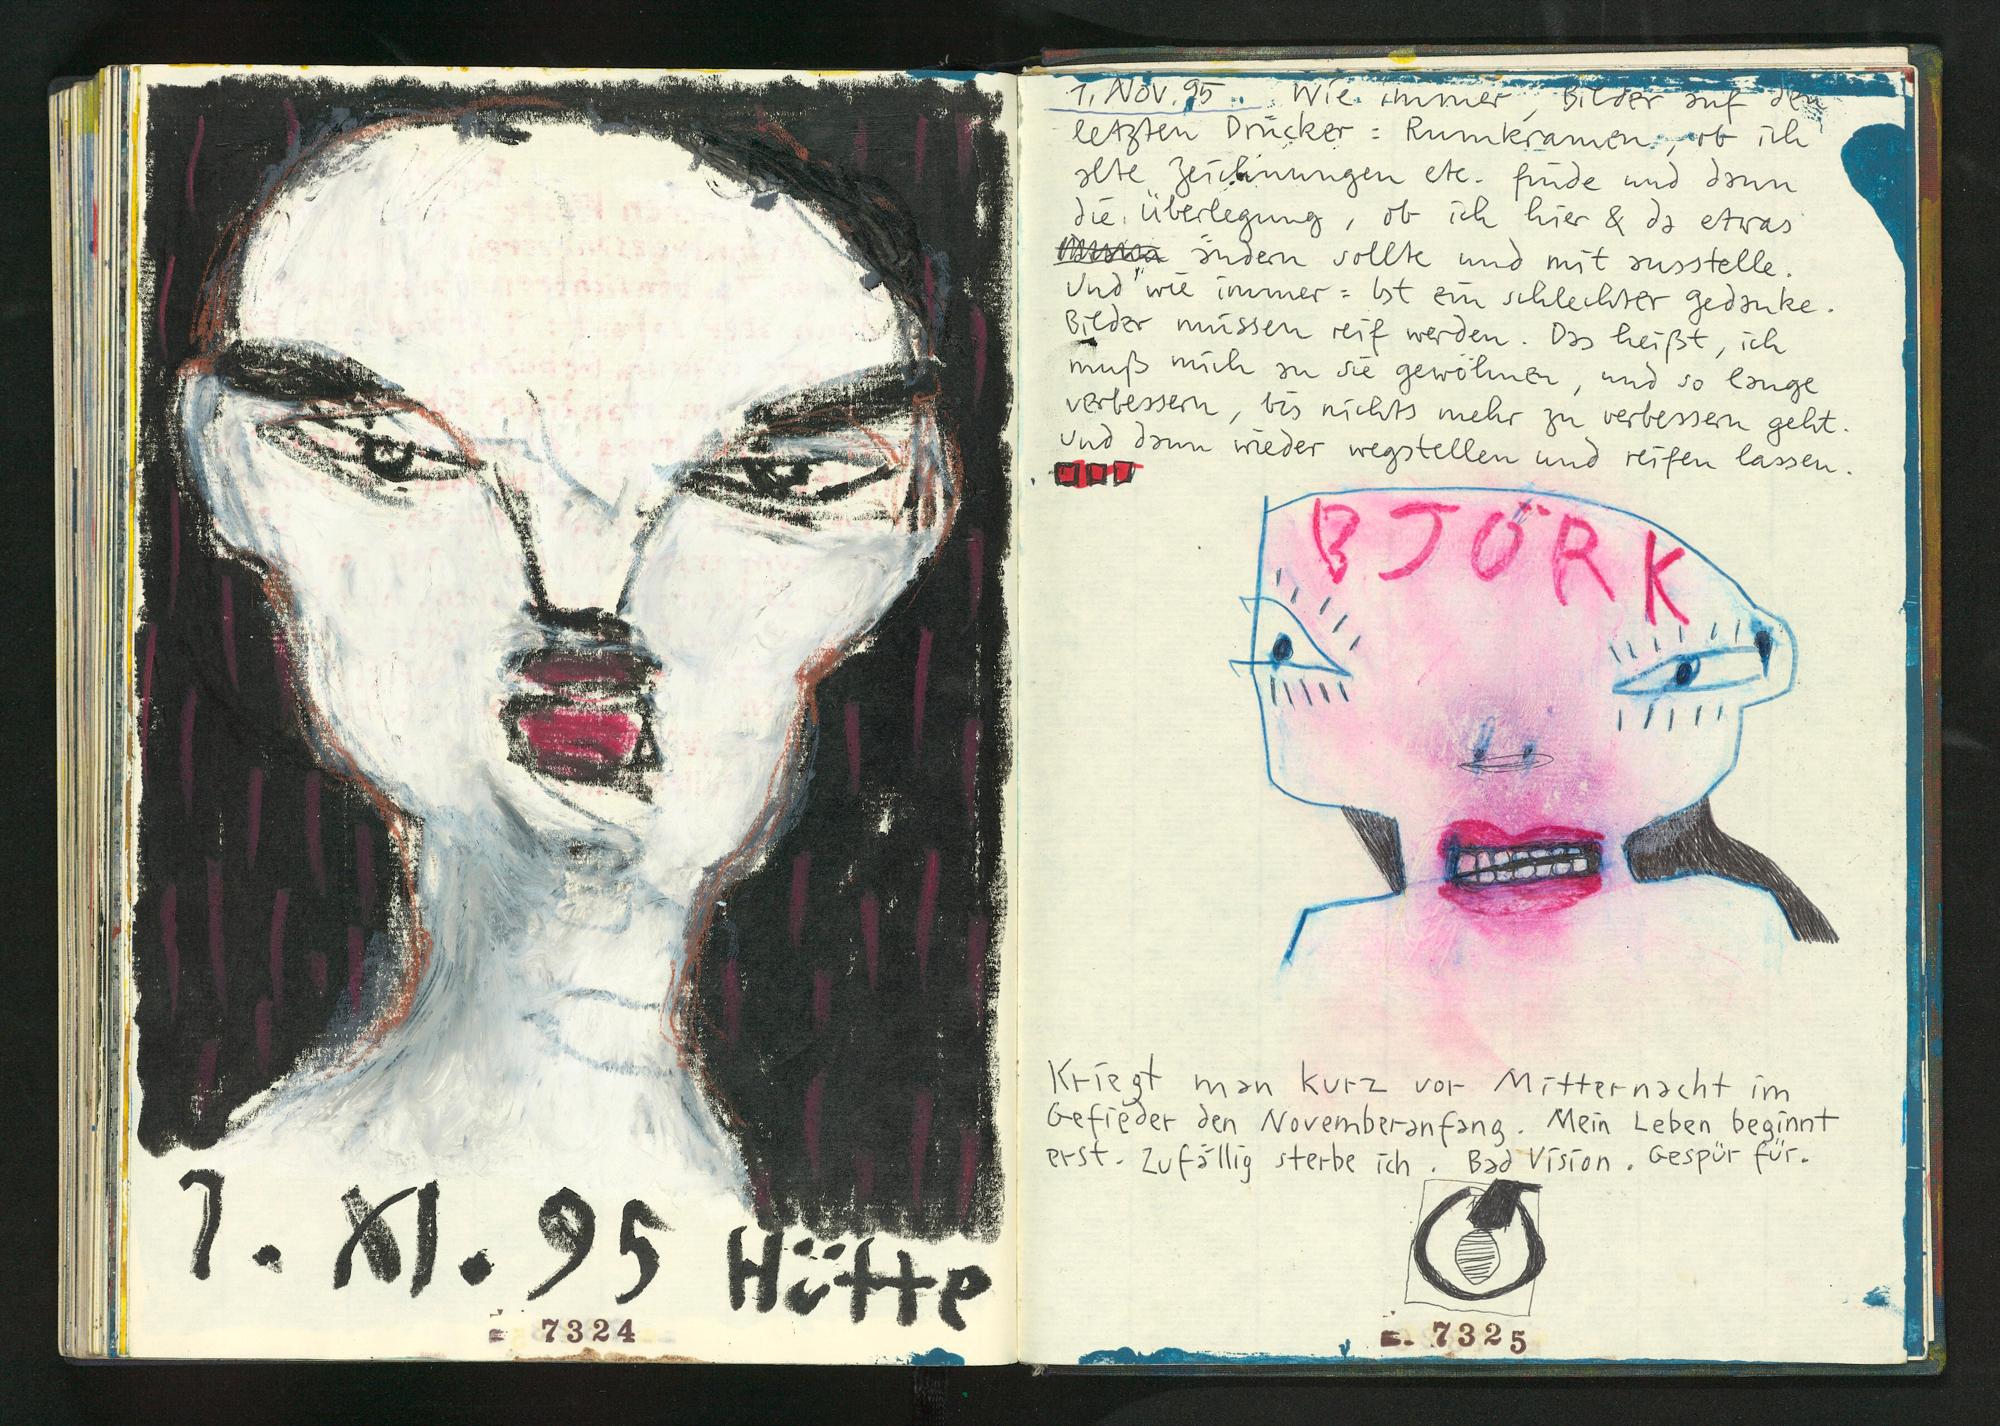 1. XI. 95 Hütte
7324
1. Nov. 95 .. Wie immer, Bilder auf den
letzten Drücker = Rumkramen, ob ich
alte Zeichnungen etc. finde und dann
die Überlegung, ob ich hier & da etwas
ändern sollte und mit ausstelle.
Und wie immer = Ist ein schlechter Gedanke.
Bilder müssen reif werden. Das heißt, ich
muß mich an sie gewöhnen, und so lange
verbessern, bis nichts mehr zu verbessern geht.
Und dann wieder wegstellen und reifen lassen.
BJÖRK
Kriegt man kurz vor Mitternacht im
Gefieder den Novemberanfang. Mein Leben beginnt
erst. Zufällig sterbe ich. Bad Vision. Gespür für.
7325